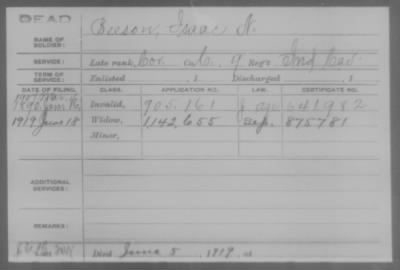 DEAD
NAME OF SOLDIER: Beeson, Isaac N.
SERVICE: Late rank, Cor. Co. 9 Reg't Ind Cav.
TERM OF SERVICE: Enlisted , 1 Discharged , 1
DATE OF FILING. CLASS. APPLICATION NO. LAW. CERTIFICATE NO.
1890 Invalid, 905.161 641982
1919 June 18 Widow, 1142,655 875781
Minor,
ADDITIONAL SERVICES:
REMARKS:
Died June 5, 1919, at